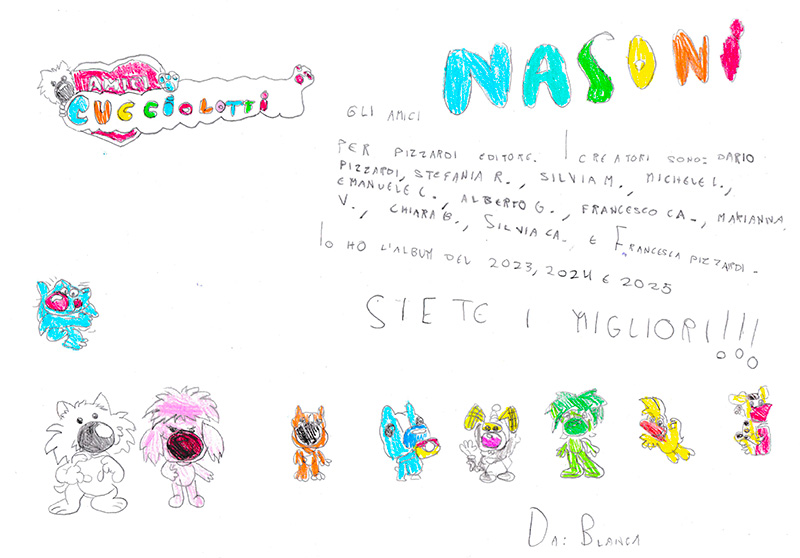 AMICI
CUCCIOLOTTI
GLI AMICI NASONI
PER PIZZARDI EDITORE. I CREATORI SONO: DARIO
PIZZARDI, STEFANIA R., SILVIA M., MICHELE L.,
EMANUELE C., ALBERTO G., FRANCESCO CA., MARIANNA
V., CHIARA B., SILVIA CA., E FRANCESCA PIZZARDI.
IO HO L'ALBUM DEL 2023, 2024 E 2025
SIETE I MIGLIORI!!!
DA: BLANCA